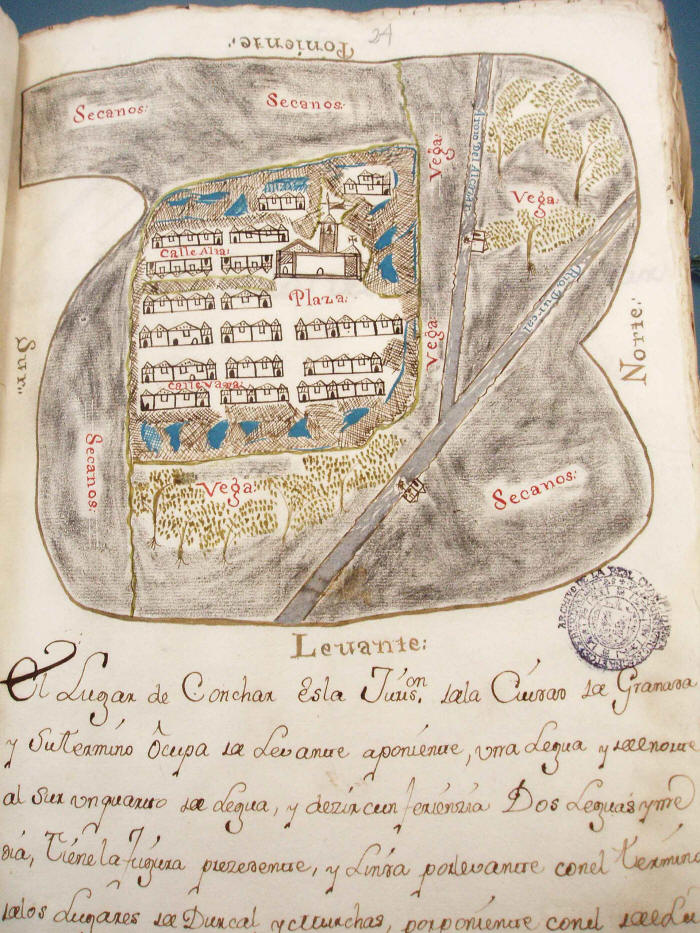 24
Poniente:
Secanos:
Secanos:
Vega:
Vega:
Calle Alta:
Plaza:
Rio Durcal:
Norte:
Sur:
Vega:
calle vaga:
Secanos
Vega:
Secanos:
Levante:
El Lugar de Conchar Es la Juris.on de la Ciudad de Granada
y Su termino Ocupa de Levante aponiente, una Legua y de norte
al Sur un quarto de Legua, y de zircunferienzia Dos Leguas y me
dia, tiene la figura prezedente, y Linda por levante con el termino
de los Lugares de Durcal y Murchas, por poniente con el de el Lu